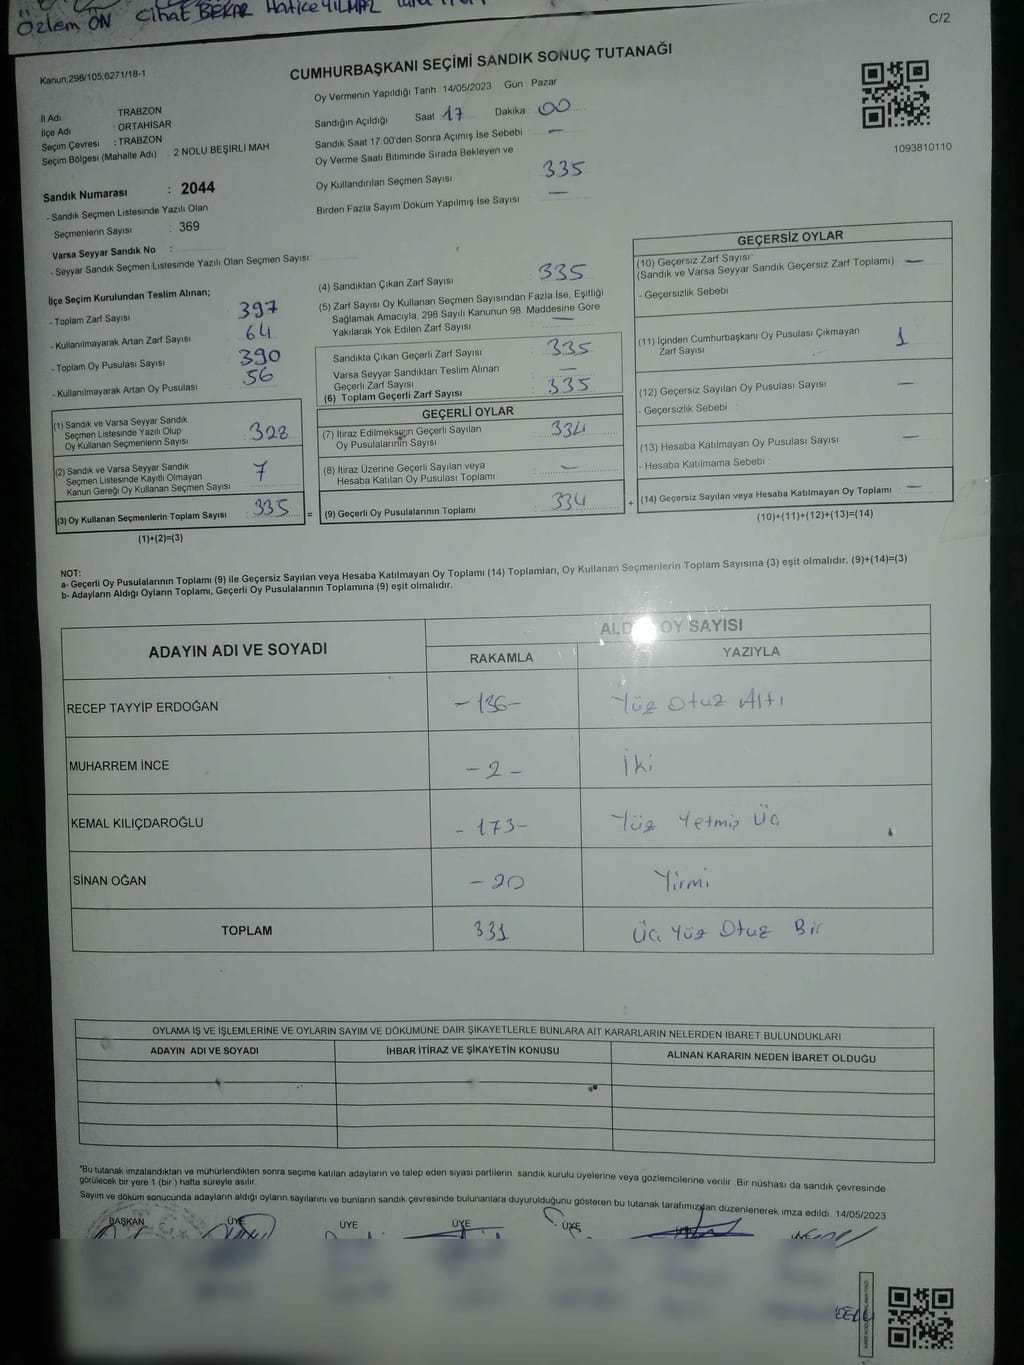 Özlem ÖN Cihat BEKAR Hatice YILMAZ
C/2
Kanun,298/105,6271/18-1
CUMHURBAŞKANI SEÇİMİ SANDIK SONUÇ TUTANAĞI
Oy Vermenin Yapıldığı Tarih 14/05/2023 Gün Pazar
İl Adı : TRABZON
İlçe Adı : ORTAHİSAR
Seçim Çevresi : TRABZON
Seçim Bölgesi (Mahalle Adı) : 2 NOLU BEŞİRLİ MAH
Sandık Numarası : 2044
- Sandık Seçmen Listesinde Yazılı Olan
Seçmenlerin Sayısı : 369
Varsa Seyyar Sandık No :
- Seyyar Sandık Seçmen Listesinde Yazılı Olan Seçmen Sayısı:
Sandığın Açıldığı Saat 17 Dakika 00
Sandık Saat 17:00'den Sonra Açılmış İse Sebebi –
Oy Verme Saati Bitiminde Sırada Bekleyen ve
Oy Kullandırılan Seçmen Sayısı 335
Birden Fazla Sayım Döküm Yapılmış İse Sayısı –
1093810110
İlçe Seçim Kurulundan Teslim Alınan;
- Toplam Zarf Sayısı : 397
- Kullanılmayarak Artan Zarf Sayısı : 64
- Toplam Oy Pusulası Sayısı : 390
- Kullanılmayarak Artan Oy Pusulası : 56
(1) Sandık ve Varsa Seyyar Sandık
Seçmen Listesinde Yazılı Olup
Oy Kullanan Seçmenlerin Sayısı : 328
(2) Sandık ve Varsa Seyyar Sandık
Seçmen Listesinde Kayıtlı Olmayan
Kanun Gereği Oy Kullanan Seçmen Sayısı : 7
(3) Oy Kullanan Seçmenlerin Toplam Sayısı : 335 =
(1)+(2)=(3)
(4) Sandıktan Çıkan Zarf Sayısı : 335
(5) Zarf Sayısı Oy Kullanan Seçmen Sayısından Fazla İse, Eşitliği
Sağlamak Amacıyla, 298 Sayılı Kanunun 98. Maddesine Göre
Yakılarak Yok Edilen Zarf Sayısı : –
Sandıkta Çıkan Geçerli Zarf Sayısı : 335
Varsa Seyyar Sandıktan Teslim Alınan
Geçerli Zarf Sayısı : –
(6) Toplam Geçerli Zarf Sayısı : 335
GEÇERLİ OYLAR
(7) İtiraz Edilmeksizin Geçerli Sayılan
Oy Pusulalarının Sayısı : 334
(8) İtiraz Üzerine Geçerli Sayılan veya
Hesaba Katılan Oy Pusulası Toplamı : –
(9) Geçerli Oy Pusulalarının Toplamı : 334 +
GEÇERSİZ OYLAR
(10) Geçersiz Zarf Sayısı : –
(Sandık ve Varsa Seyyar Sandık Geçersiz Zarf Toplamı)
- Geçersizlik Sebebi :
(11) İçinden Cumhurbaşkanı Oy Pusulası Çıkmayan
Zarf Sayısı : 1
(12) Geçersiz Sayılan Oy Pusulası Sayısı : –
- Geçersizlik Sebebi :
(13) Hesaba Katılmayan Oy Pusulası Sayısı : –
- Hesaba Katılmama Sebebi :
(14) Geçersiz Sayılan veya Hesaba Katılmayan Oy Toplamı : –
(10)+(11)+(12)+(13)=(14)
NOT:
a- Geçerli Oy Pusulalarının Toplamı (9) ile Geçersiz Sayılan veya Hesaba Katılmayan Oy Toplamı (14) Toplamları, Oy Kullanan Seçmenlerin Toplam Sayısına (3) eşit olmalıdır. (9)+(14)=(3)
b- Adayların Aldığı Oyların Toplamı, Geçerli Oy Pusulalarının Toplamına (9) eşit olmalıdır.
ADAYIN ADI VE SOYADI
ALDIĞI OY SAYISI
RAKAMLA YAZIYLA
RECEP TAYYİP ERDOĞAN -136- Yüz Otuz Altı
MUHARREM İNCE -2- İki
KEMAL KILIÇDAROĞLU -173- Yüz Yetmiş Üç
SİNAN OĞAN -20 Yirmi
TOPLAM 331 Üç Yüz Otuz Bir
OYLAMA İŞ VE İŞLEMLERİNE VE OYLARIN SAYIM VE DÖKÜMÜNE DAİR ŞİKAYETLERLE BUNLARA AİT KARARLARIN NELERDEN İBARET BULUNDUKLARI
ADAYIN ADI VE SOYADI İHBAR İTİRAZ VE ŞİKAYETİN KONUSU ALINAN KARARIN NEDEN İBARET OLDUĞU
*Bu tutanak imzalandıktan ve mühürlendikten sonra seçime katılan adayların ve talep eden siyasi partilerin sandık kurulu üyelerine veya gözlemcilerine verilir. Bir nüshası da sandık çevresinde
görülecek bir yere 1 (bir) hafta süreyle asılır.
Sayım ve döküm sonucunda adayların aldığı oyların sayılarını ve bunların sandık çevresinde bulunanlara duyurulduğunu gösteren bu tutanak tarafımızdan düzenlenerek imza edildi. 14/05/2023
BAŞKAN ÜYE ÜYE ÜYE ÜYE ÜYE